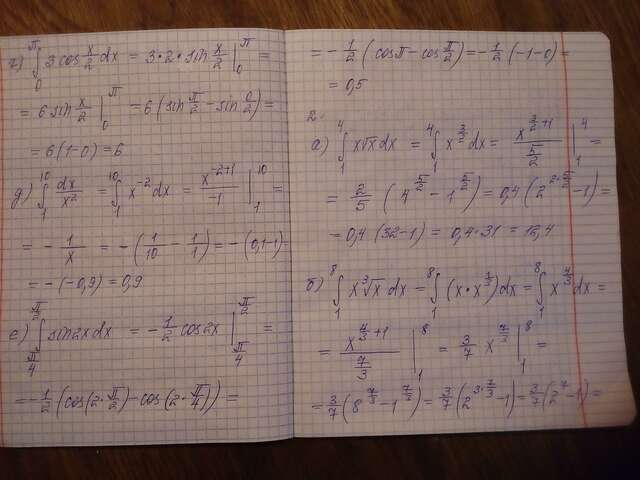 г) ∫₀^π 3 cos x/2 dx = 3·2·sin x/2 |₀^π =
= 6 sin x/2 |₀^π = 6(sin π/2 − sin 0/2) =
= 6(1−0) = 6
д) ∫₁^10 dx/x² = ∫₁^10 x^(-2) dx = x^(-2+1)/-1 |₁^10 =
= − 1/x = −(1/10 − 1/1) = −(0,1−1) =
= −(−0,9) = 0,9
е) ∫_(π/4)^(π/2) sin2x dx = −1/2 cos2x |_(π/4)^(π/2) =
= −1/2 (cos(2·π/2) − cos(2·π/4)) =
= −1/2 (cosπ − cos π/2) = −1/2 (−1−0) =
= 0,5
2.
а) ∫₁^4 x√x dx = ∫₁^4 x^(3/2) dx = x^(3/2+1)/(5/2) |₁^4 =
= 2/5 (4^(5/2) − 1^(5/2)) = 0,4(2^(2·5/2) − 1) =
= 0,4 (32−1) = 0,4·31 = 12,4
б) ∫₁^8 x ∛x dx = ∫₁^8 (x·x^(1/3)) dx = ∫₁^8 x^(4/3) dx =
= x^(4/3+1)/(7/3) |₁^8 = 3/7 x^(7/3) |₁^8 =
= 3/7 (8^(7/3) − 1^(7/3)) = 3/7 (2^(3·7/3) − 1) = 3/7 (2^7 − 1) =